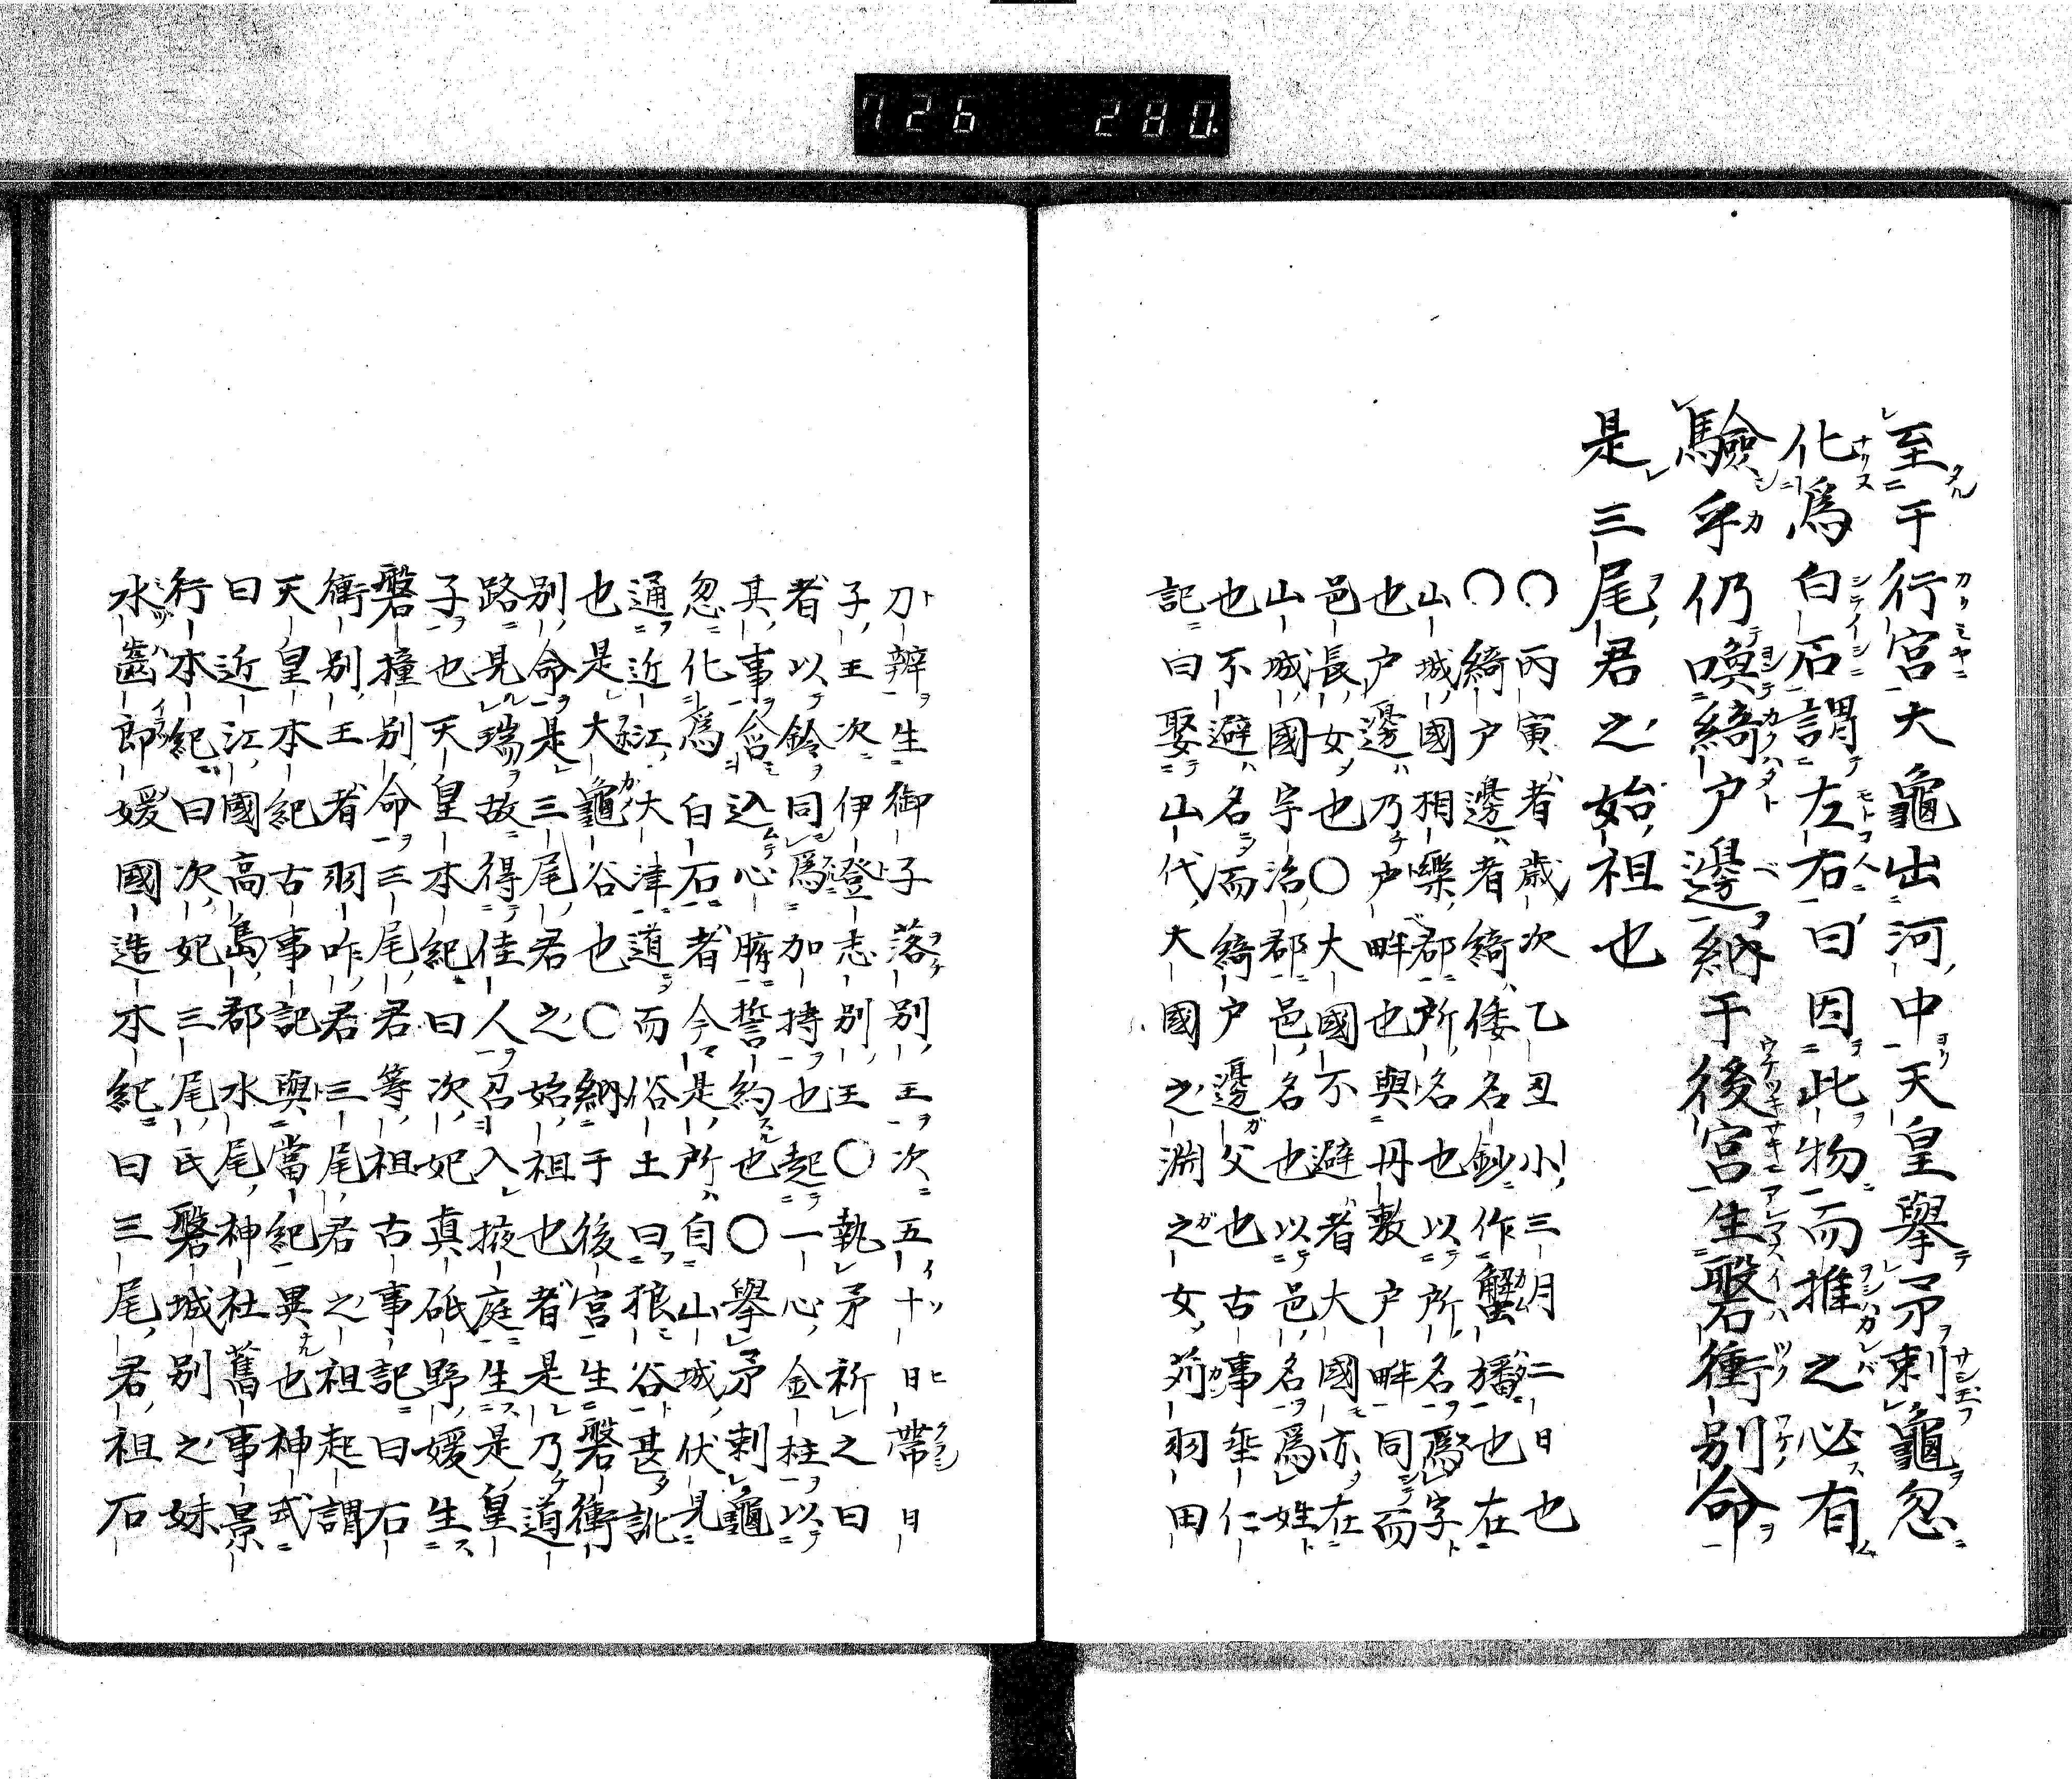 726 280
至于行宮大龜出河中天皇擧矛刺龜忽
化爲白石謂左右曰因此物而推之必有
驗乎仍喚綺戸邊納于後宮生磐衝別命
是三尾君之始祖也
○丙寅者歳次乙丑小三月二日也
○綺戸邊者綺倭名鈔作蟹幡也在
山城國相樂郡所名也以所名爲字
也戸邊乃戸畔也與丹敷戸畔同而
邑長女也○大國不避者大國亦在
山城國宇治郡邑名也以邑名爲姓
也不避名而綺戸邊父也古事垂仁
記曰娶山代大國之淵之女苅羽田
刀辨生御子落別王次五十日帶日
子王次伊登志別王○執矛祈之曰
者以鈴同爲加持也起一心金柱以
其事含込心臍誓約也○擧矛刺龜
忽化爲白石者今是所自山城伏見
通近江大津道而俗土曰狼谷甚訛
也是大龜谷也○納于後宮生磐衝
別命是三尾君之始祖也者是乃道
路見瑞故得佳人召入掖庭生是皇
子也天皇本紀曰次妃眞砥野媛生
磐撞別命三尾君等祖古事記曰石
衝別王者羽咋君三尾君之祖起謂
天皇本紀古事記與當紀異也神式
曰近江國高島郡水尾神社舊事景
行本紀曰次妃三尾氏磐城別之妹
水齒郎媛國造本紀曰三尾君祖石